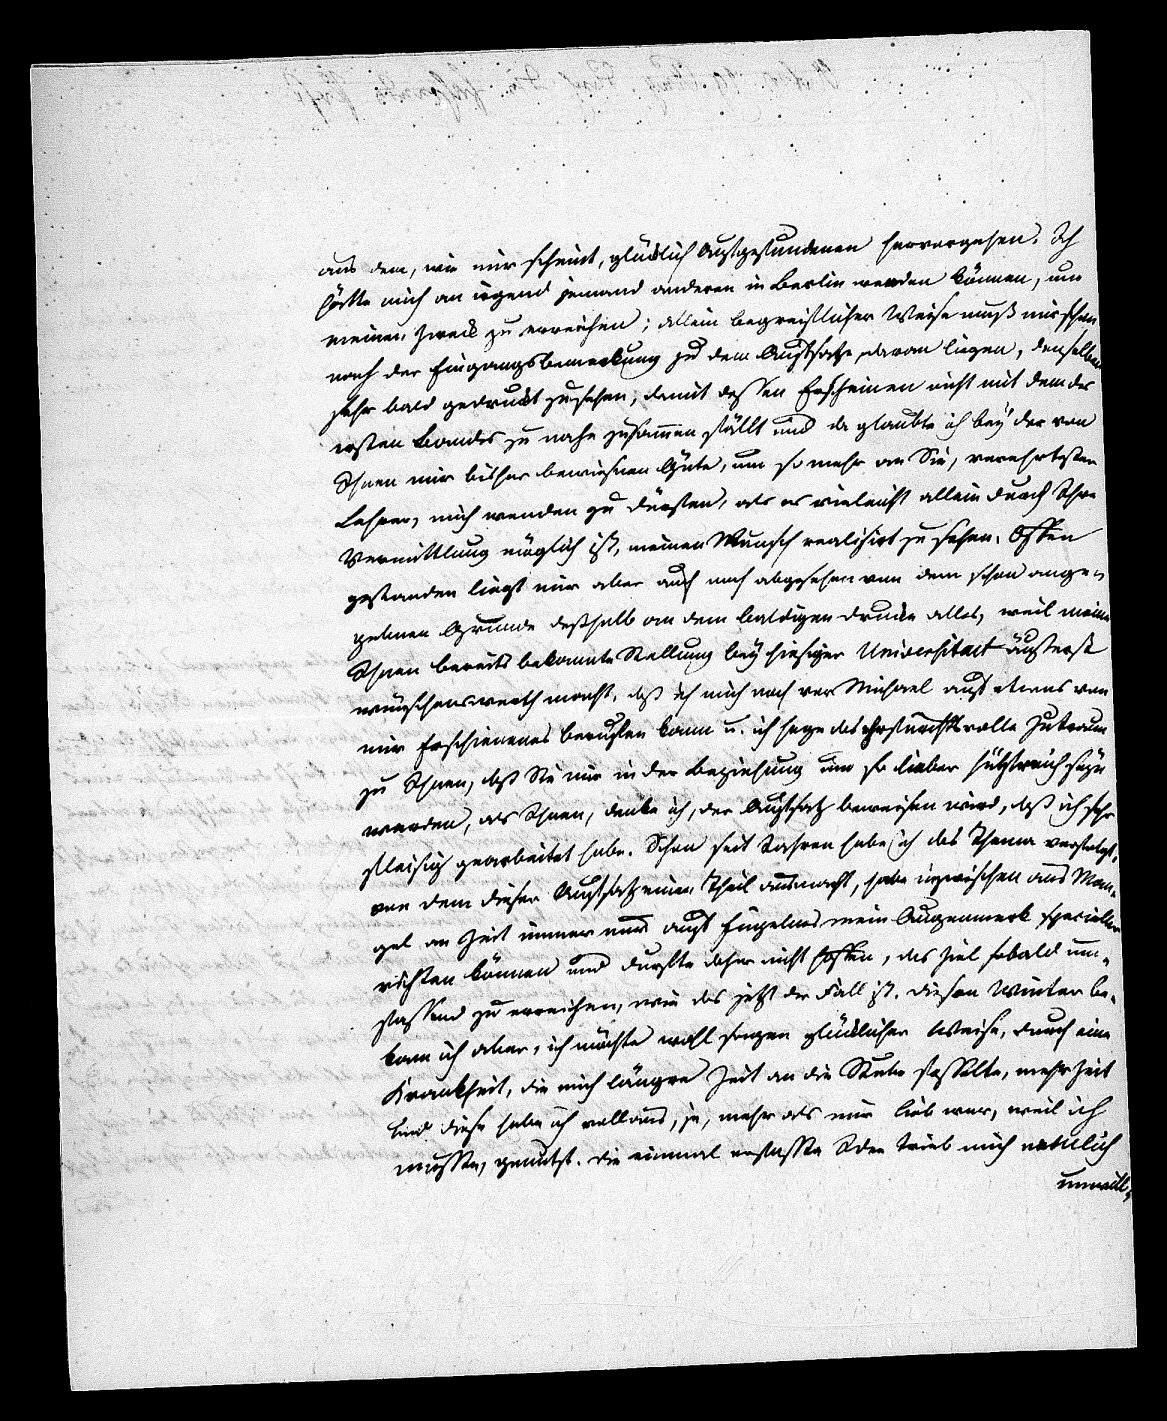 aus dem, wie mir scheint, glücklich Aufgefundenen hervorgehen. Ich
hätte mich an irgend jemand anderen in Berlin wenden können, um
meinen Zweck zu erreichen; allein begreiflicher Weise muß mir schon
nach der Eingangsbemerkung zu dem Aufsatze daran liegen, denselben
sehr bald gedruckt zu sehen, damit dessen Erscheinen nicht mit dem des
ersten Bandes zu nahe zusammen fällt und da glaubte ich bey der von
Ihnen mir bisher bewiesnen Güte, um so mehr an Sie, verehrtester
Lehrer, mich wenden zu dürfen, als es vieleicht allein durch Ihre
Vermittlung möglich ist, meinen Wunsch realisirt zu sehen. Offen
gestanden liegt mir aber auch noch abgesehen von dem schon ange-
gebnen Grunde deßhalb an dem baldigen Drucke alles, weil meine
Ihnen bereits bekannte Stellung bey hiesiger Universitaet äußerst
wünschenswerth macht, daß ich mich noch vor Michael auf etwas von
mir Erschienenes berufen kann u. ich hege das ehrfurchtsvolle Zutraun
zu Ihnen, daß Sie mir in der Beziehung um so lieber hülfreich seyn
werden, als Ihnen, denke ich, der Aufsatz beweisen wird, daß ich sehr
fleisig gearbeitet habe. Schon seit Jahren habe ich das Thema verfolgt,
von dem dieser Aufsatz einen Theil ausmacht, habe inzwischen aus Man-
gel an Zeit immer nur aufs Einzelnes mein Augenmerk specieller
richten können und durfte daher nicht hoffen, das Ziel sobald um-
fassend zu erreichen, wie das jetzt der Fall ist. Diesen Winter be-
kam ich aber, ich möchte wohl sagen glücklicher Weise, durch eine
Krankheit, die mich längre Zeit an die Stube fesselte, mehr Zeit
und diese habe ich vollauf, ja, mehr als mir lieb war, weil ich
musste, genutzt. Die einmal erfasste Idee trieb mich natürlich
unwill-